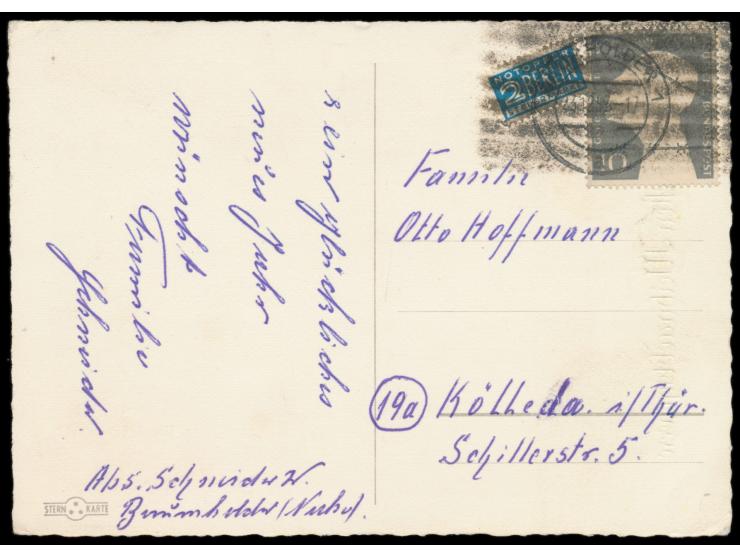 ein glückliches
neues Jahr
wünscht
Familie
Schneider.
Abs. Schneider W.
Baumholder/(Nahe).
STERN KARTE
NOTOPFER
2 BERLIN
STEUERMARKE
10
Familie
Otto Hoffmann
19a Kölleda. i/Thür.
Schillerstr. 5.